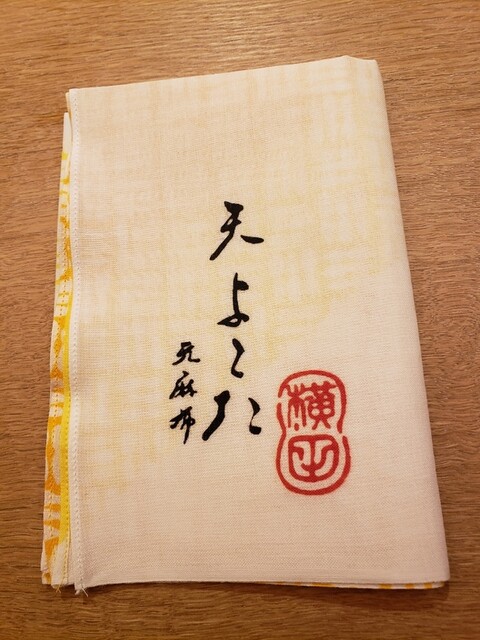 天よこた
元麻布
横田